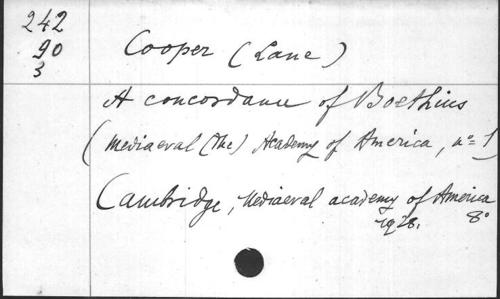 242
90
3
Cooper (Lane)
A concordance of Boethius
(Mediaeval (The) Academy of America, n° 1)
Cambridge, Mediaeval academy of America
1928. 8°